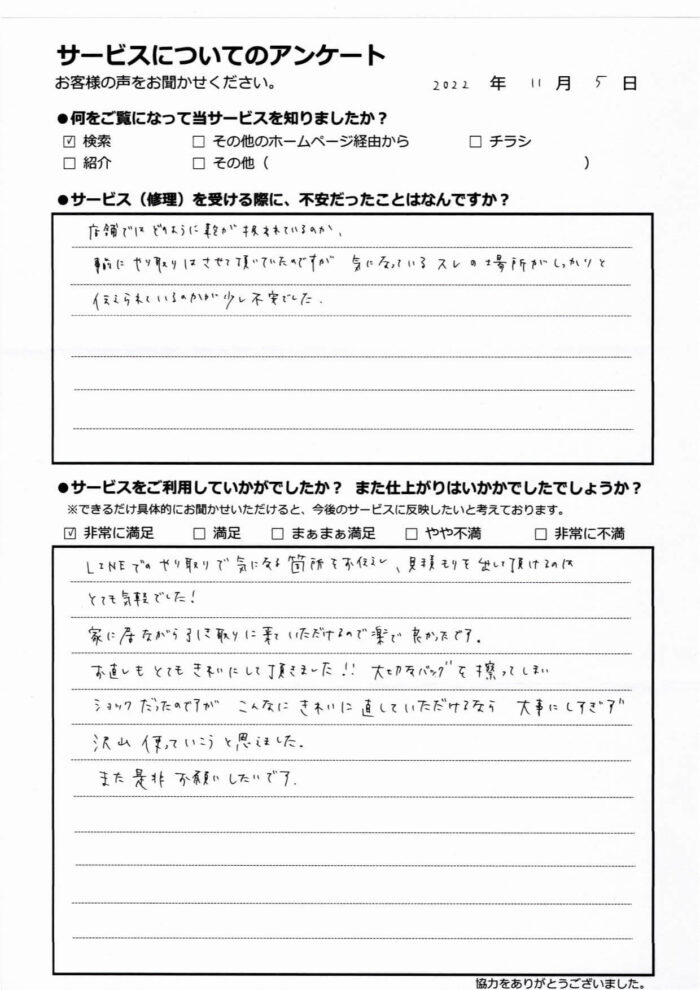 サービスについてのアンケート
お客様の声をお聞かせください。
2022 年 11 月 5 日
●何をご覧になって当サービスを知りましたか？
☑ 検索 □ その他のホームページ経由から □ チラシ
□ 紹介 □ その他（ ）
●サービス（修理）を受ける際に、不安だったことはなんですか？
店舗ではどのように鞄が扱われているのか、
事前にやり取りはさせて頂いていたのですが 気になっているスレの場所がしっかりと
伝えられているのかが少し不安でした.
●サービスをご利用していかがでしたか？ また仕上がりはいかかでしたでしょうか？
※できるだけ具体的にお聞かせいただけると、今後のサービスに反映したいと考えております。
☑ 非常に満足 □ 満足 □ まぁまぁ満足 □ やや不満 □ 非常に不満
LINEでのやり取りで気になる箇所をお伝えし、見積もりを出して頂けるのは
とても気軽でした！
家に居ながら引き取りに来ていただけるので楽で良かったです。
お直しもとてもきれいにして頂きました！！ 大切なバッグを擦ってしまい
ショックだったのですが こんなにきれいに直していただけるなら 大事にしすぎず
沢山使っていこうと思えました。
また是非お願いしたいです.
協力をありがとうございました。